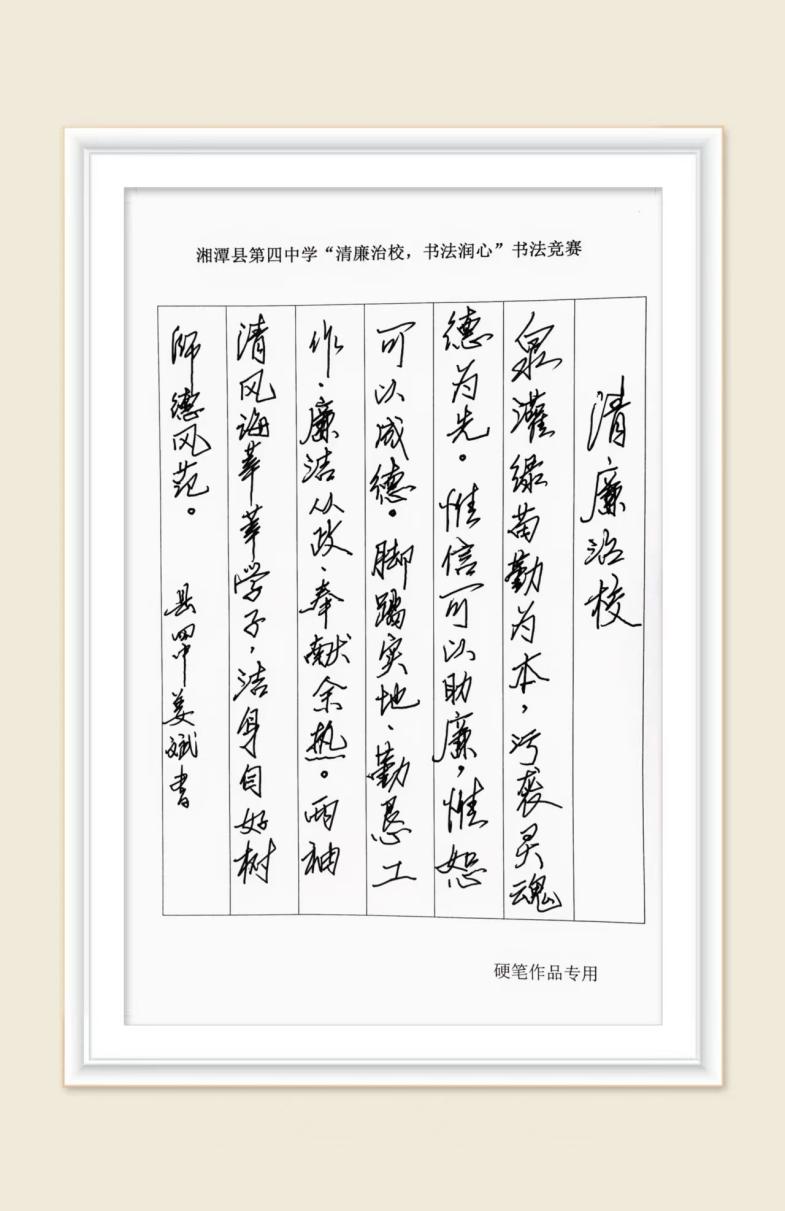 湘潭县第四中学“清廉治校，书法润心”书法竞赛
清廉治校
泉灌绿苗勤为本，污袭灵魂
德为先。惟信可以助廉，惟恕
可以成德。脚踏实地、勤恳工
作、廉洁从政、奉献余热。两袖
清风诲莘莘学子，洁身自好树
师德风范。
县四中姜斌書
硬笔作品专用